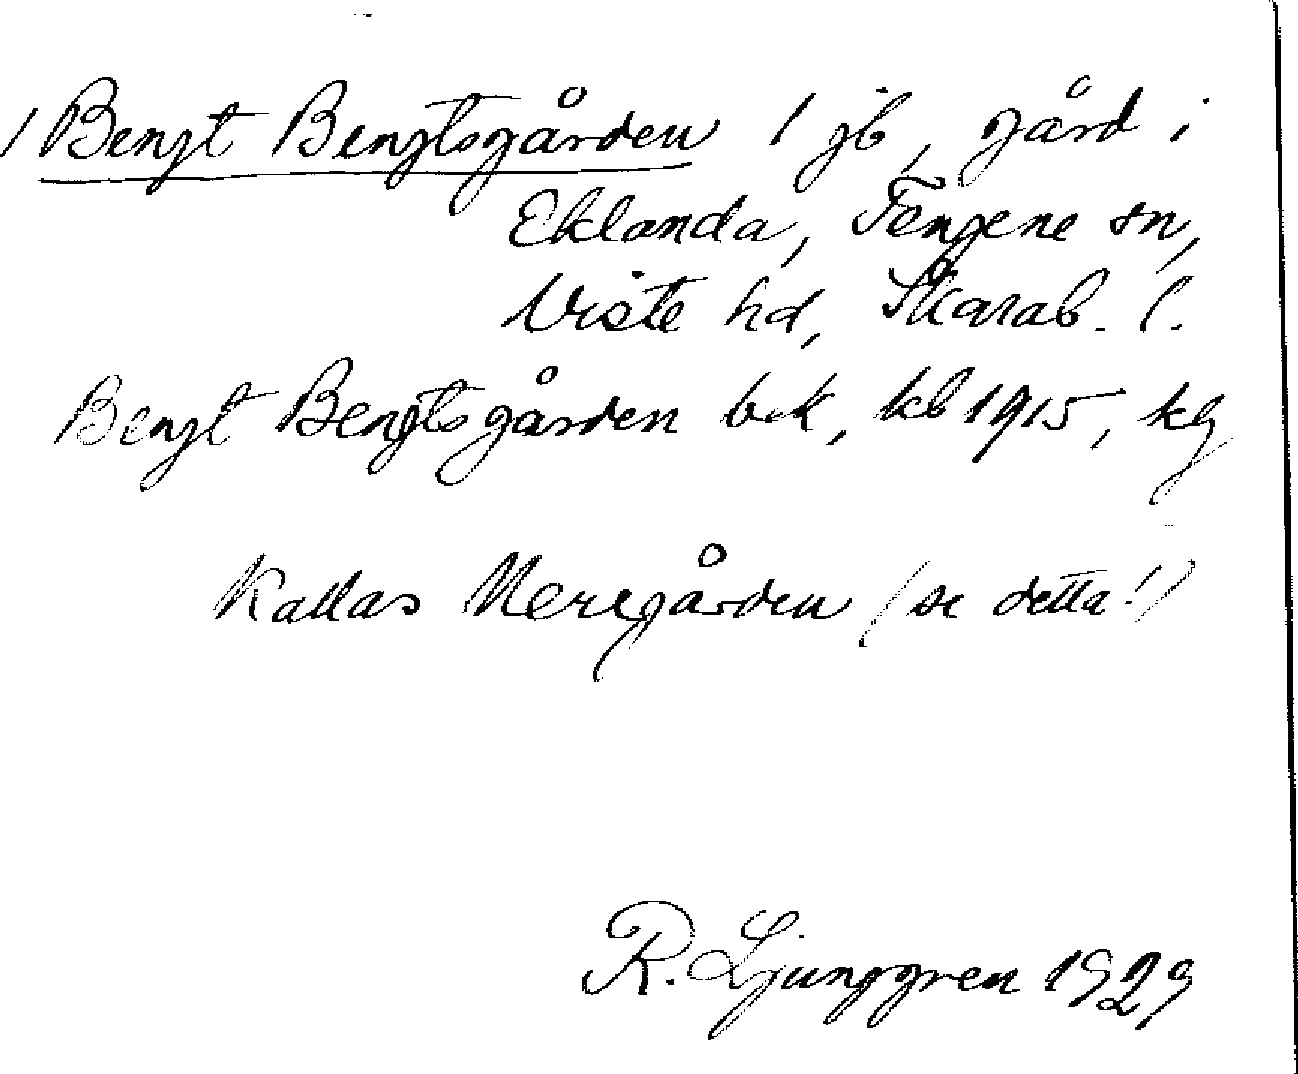 / Bengt Bengtsgården / jb, gård i
Eklanda, Tengene sn,
Viste hd, Skarab. l.
Bengt Bengtsgården bek, kb 1915, kg
Kallas Neregården (se detta!)
R. Ljunggren 1929